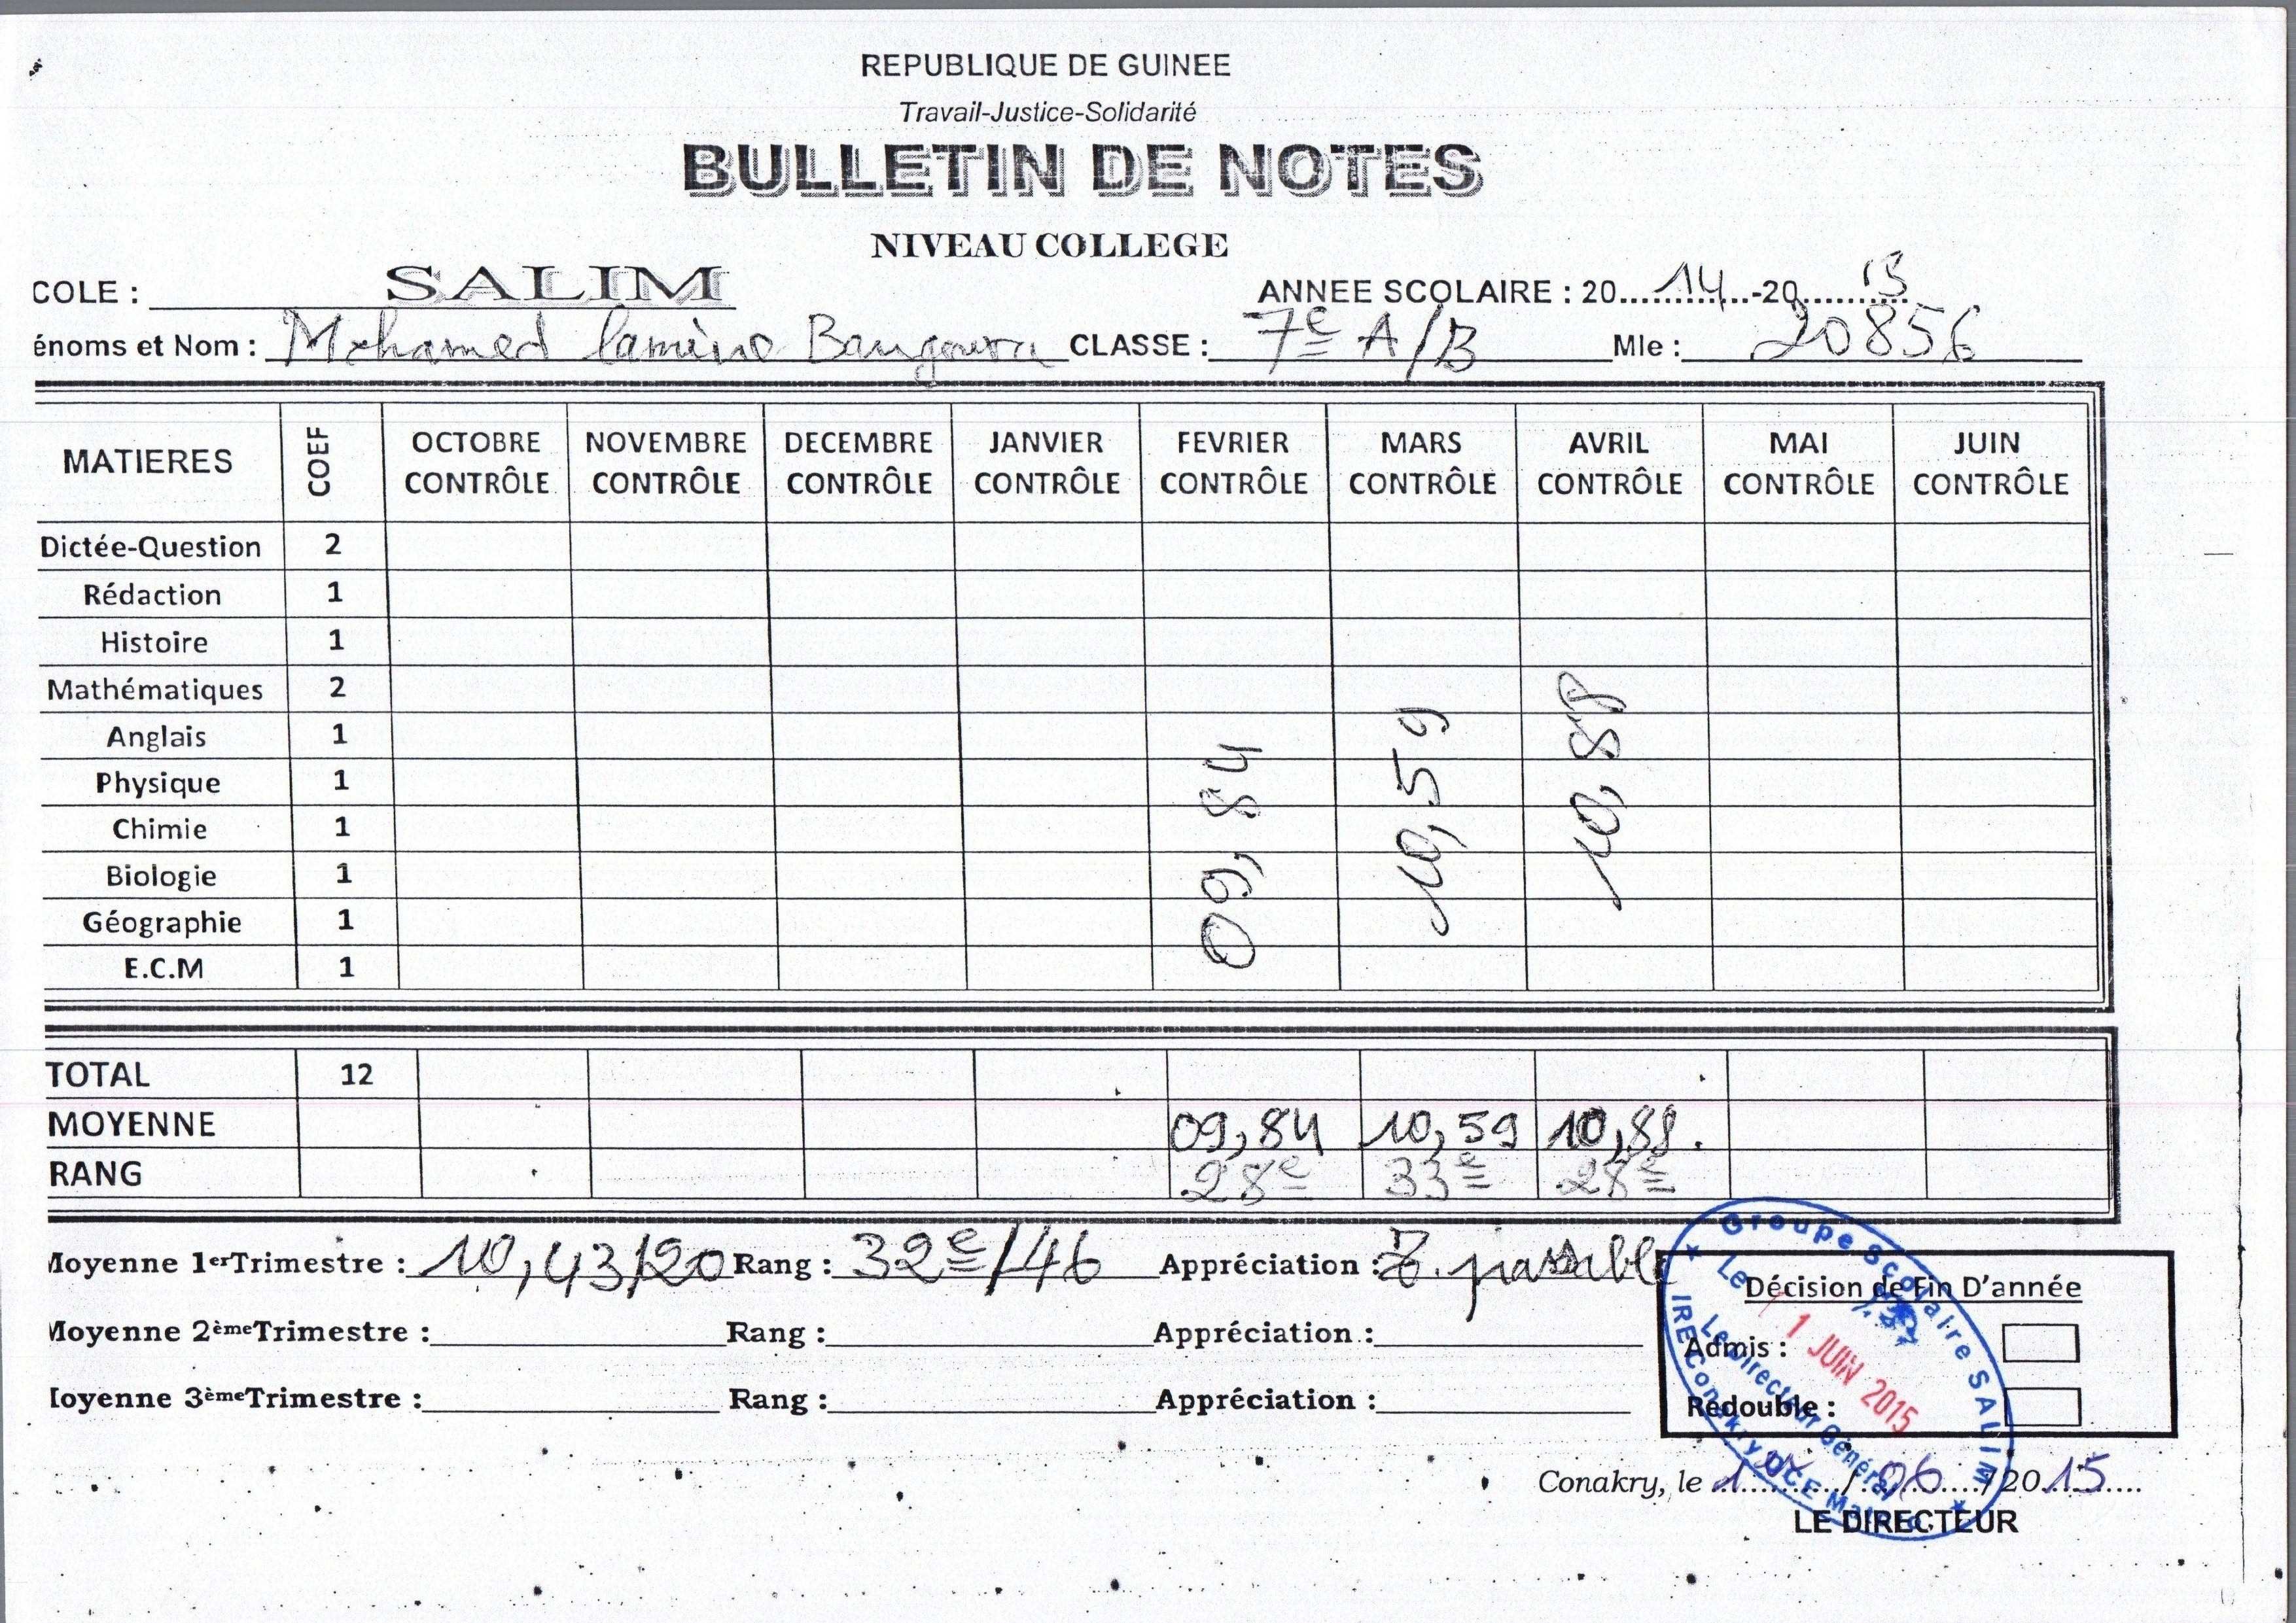 REPUBLIQUE DE GUINEE
Travail-Justice-Solidarité
BULLETIN DE NOTES
NIVEAU COLLEGE
COLE : SALIM ANNEE SCOLAIRE : 20 14 -20 15
énoms et Nom : Mohamed lamine Bangoura CLASSE : 7e A/B Mle : 20856
MATIERES COEF OCTOBRE CONTRÔLE NOVEMBRE CONTRÔLE DECEMBRE CONTRÔLE JANVIER CONTRÔLE FEVRIER CONTRÔLE MARS CONTRÔLE AVRIL CONTRÔLE MAI CONTRÔLE JUIN CONTRÔLE
Dictée-Question 2
Rédaction 1
Histoire 1
Mathématiques 2
Anglais 1
Physique 1
Chimie 1
Biologie 1
Géographie 1
E.C.M 1
09,84 10,59 10,88
TOTAL 12
MOYENNE 09,84 10,59 10,88.
RANG 28e 33e 28e
Moyenne 1erTrimestre : 10,43/20 Rang : 32e/46 Appréciation : T. passable
Moyenne 2èmeTrimestre : Rang : Appréciation :
Moyenne 3èmeTrimestre : Rang : Appréciation :
Décision de Fin D'année
Admis :
Rédouble :
Groupe Scolaire SALIM
Le
11 JUIN 2015
Le Directeur Général
Conakry, le / 06 / 20 15
LE DIRECTEUR